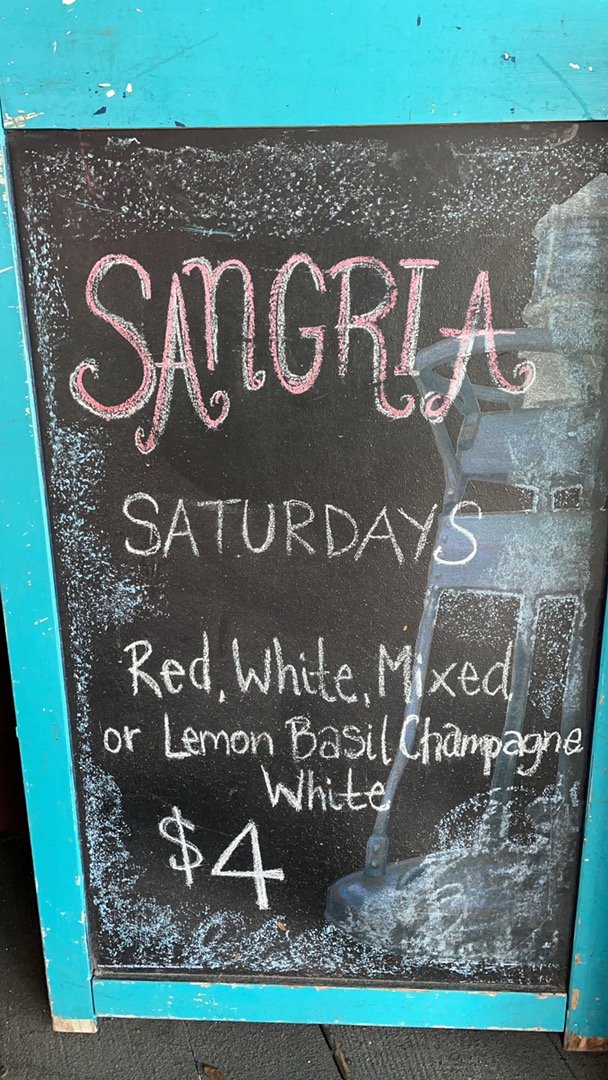 SAnGRIA
SATURDAYS
Red, White, Mixed,
or Lemon Basil Champagne
White
$4